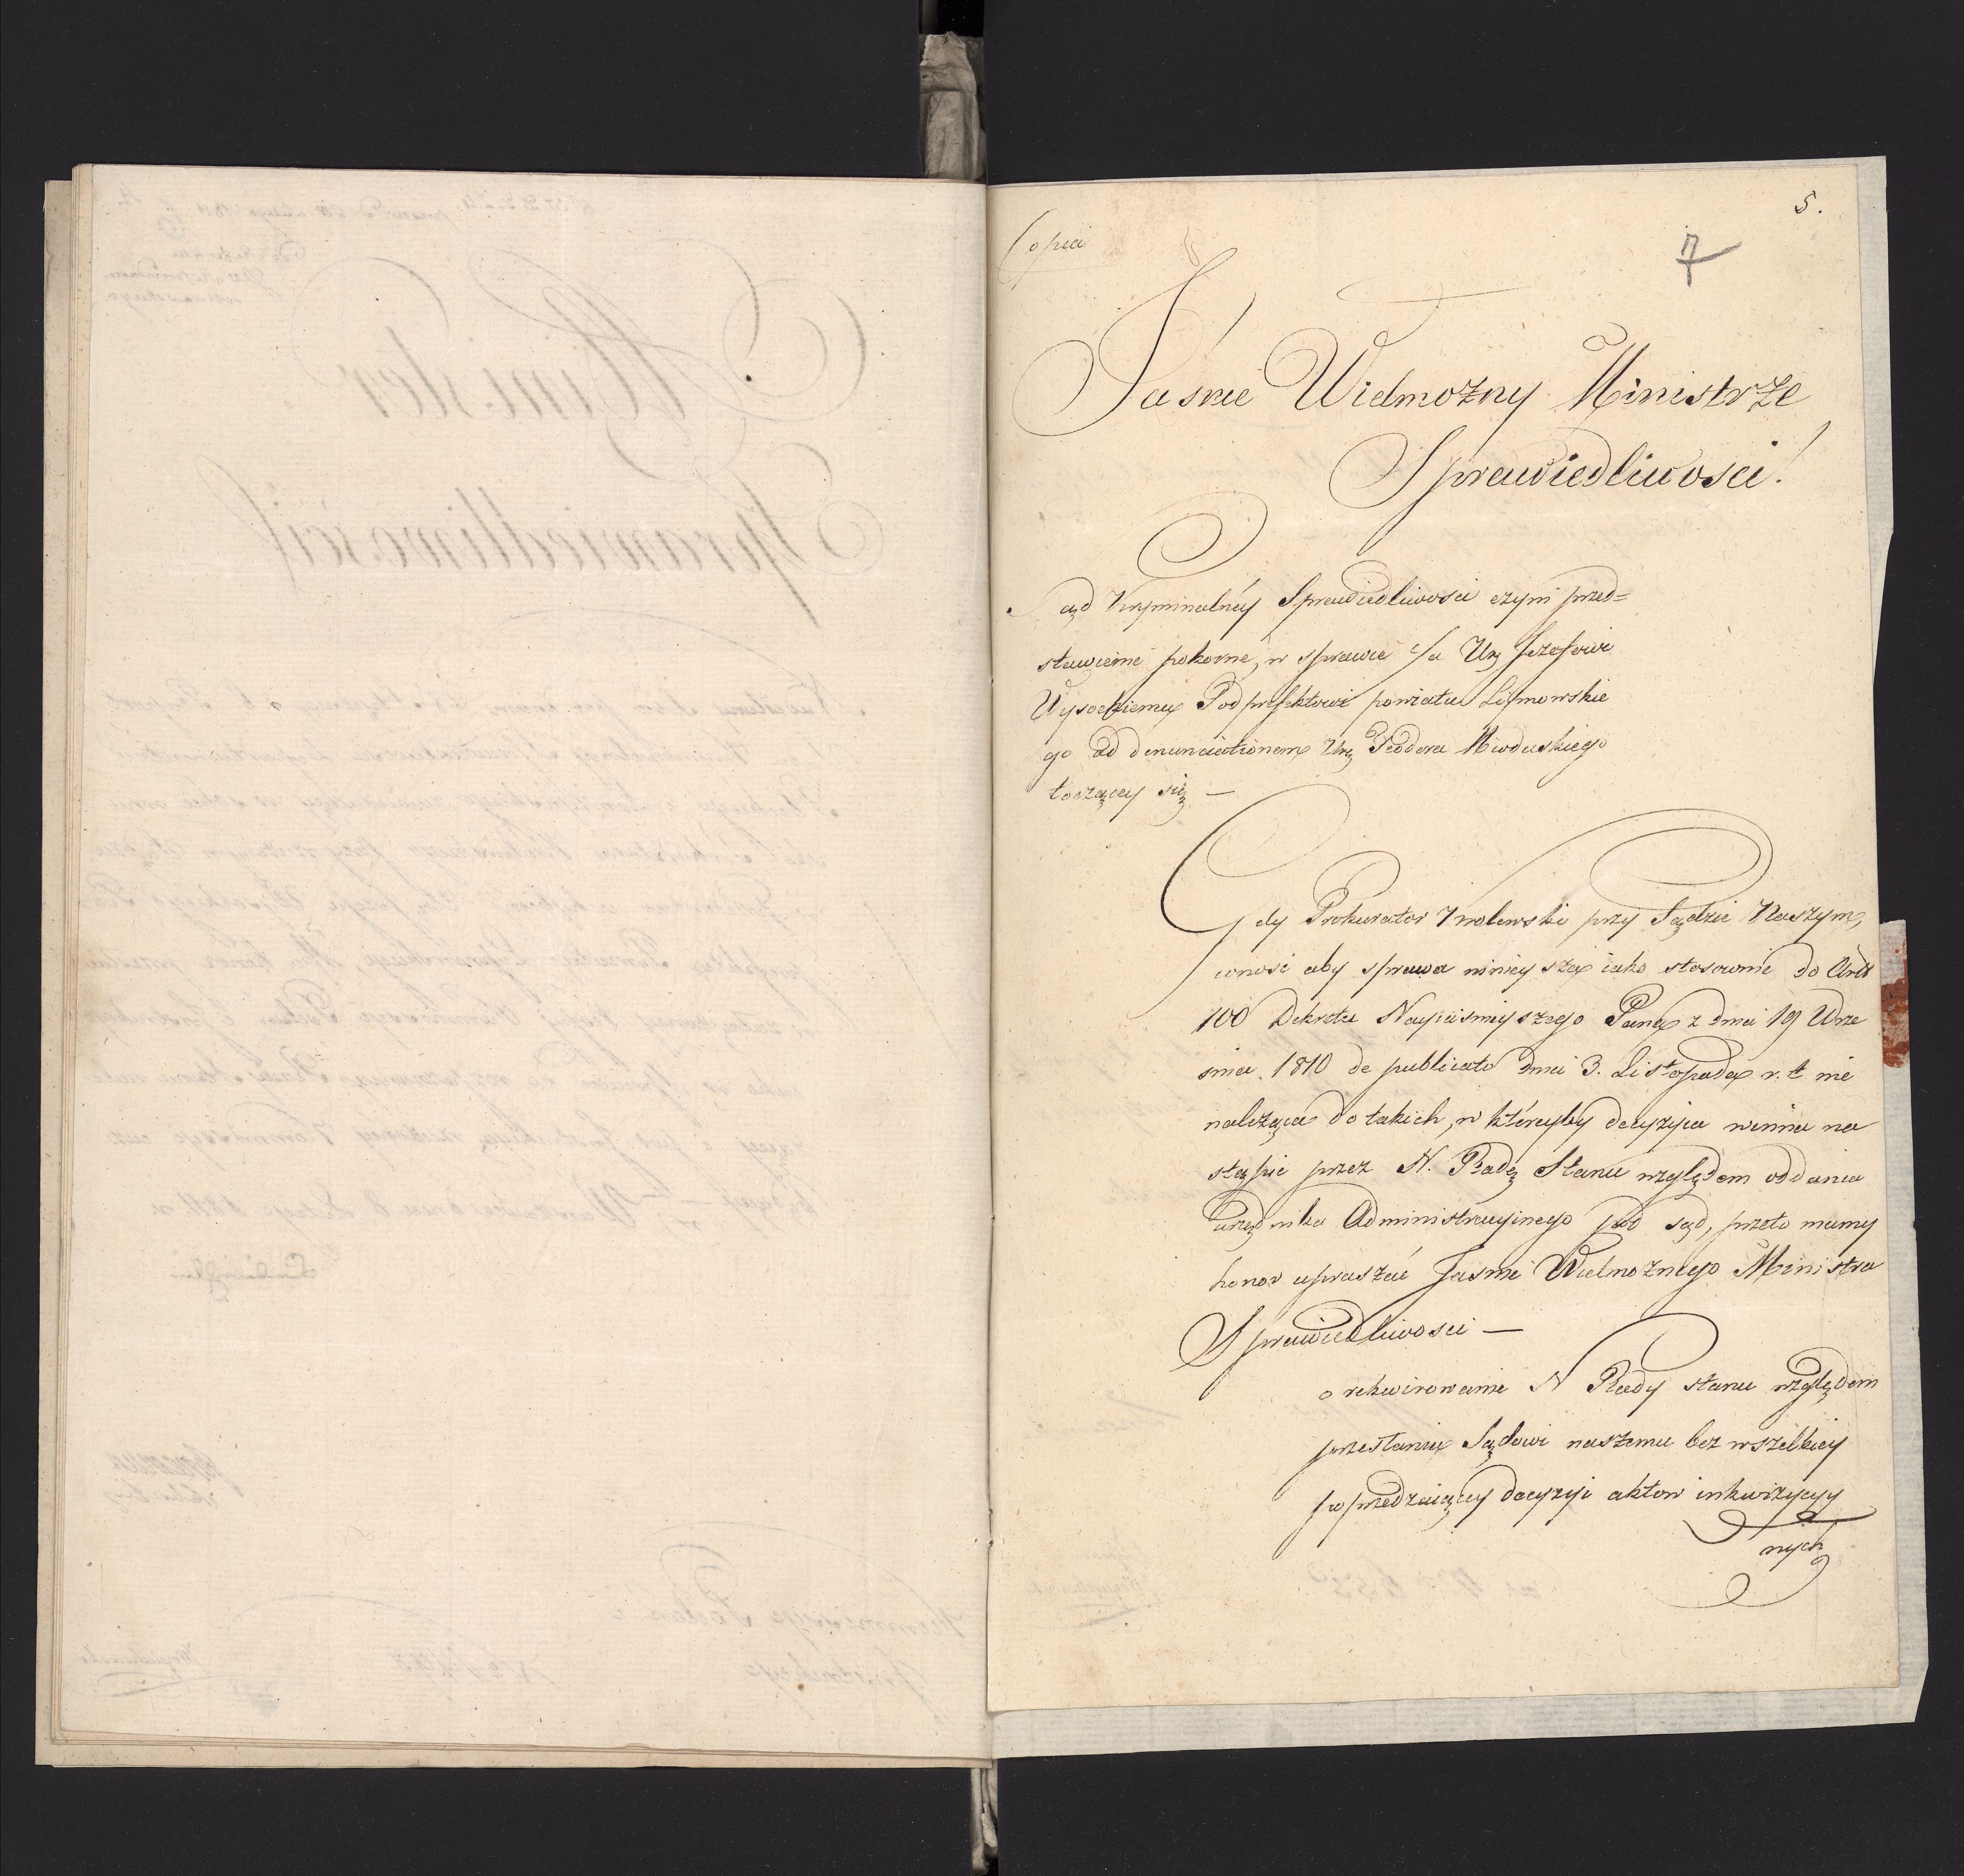 5.
7
Copia
Jaśnie Wielmożny Ministrze
Sprawiedliwosci!
Sąd Kryminalnéy Sprawiedliwosci czyni przed=
stawienie pokorne, w sprawie c/a Ur Jozefowi
Wysockiemu Podprefektowi powiatu Lipnowskie
go ad denunciationem Ur Teodora Mioduskiego
toczącey się —
Gdy Prokurator Krolewski przy Sądzie Naszym,
wnosi aby sprawa ninieysza iako stosownie do Art
100 Dekretu Nayiasnieyszego Pana z dnia 19 Wrze
snia 1810 de publicato dnia 3. Listopada r. t nie
należąca do takich, w któreyby decyzyia winna na
stąpic przez N. Radę Stanu względem oddania
urzędnika Administracyinego pod sąd, przeto mamy
honor upraszać Jasnie Wielmożnego Ministra
Sprawiedliwosci —
o rekwirowanie N Rady stanu względem
przesłania Sądowi naszemu bez wszelkiey
poprzedzaiącey decyzyi aktow inkwizycyy
nych